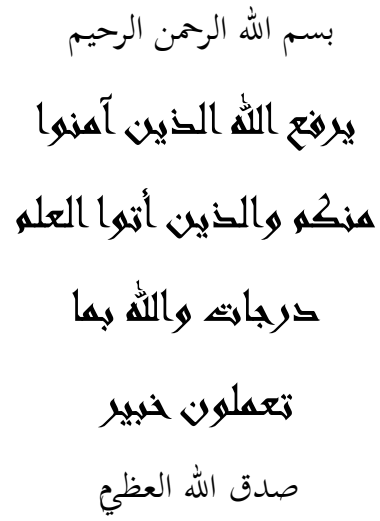 بسم الله الرحمن الرحيم
يرفع الله الذين آمنوا
منكم والذين أتوا العلم
درجات والله بما
تعملون خبير
صدق الله العظيم